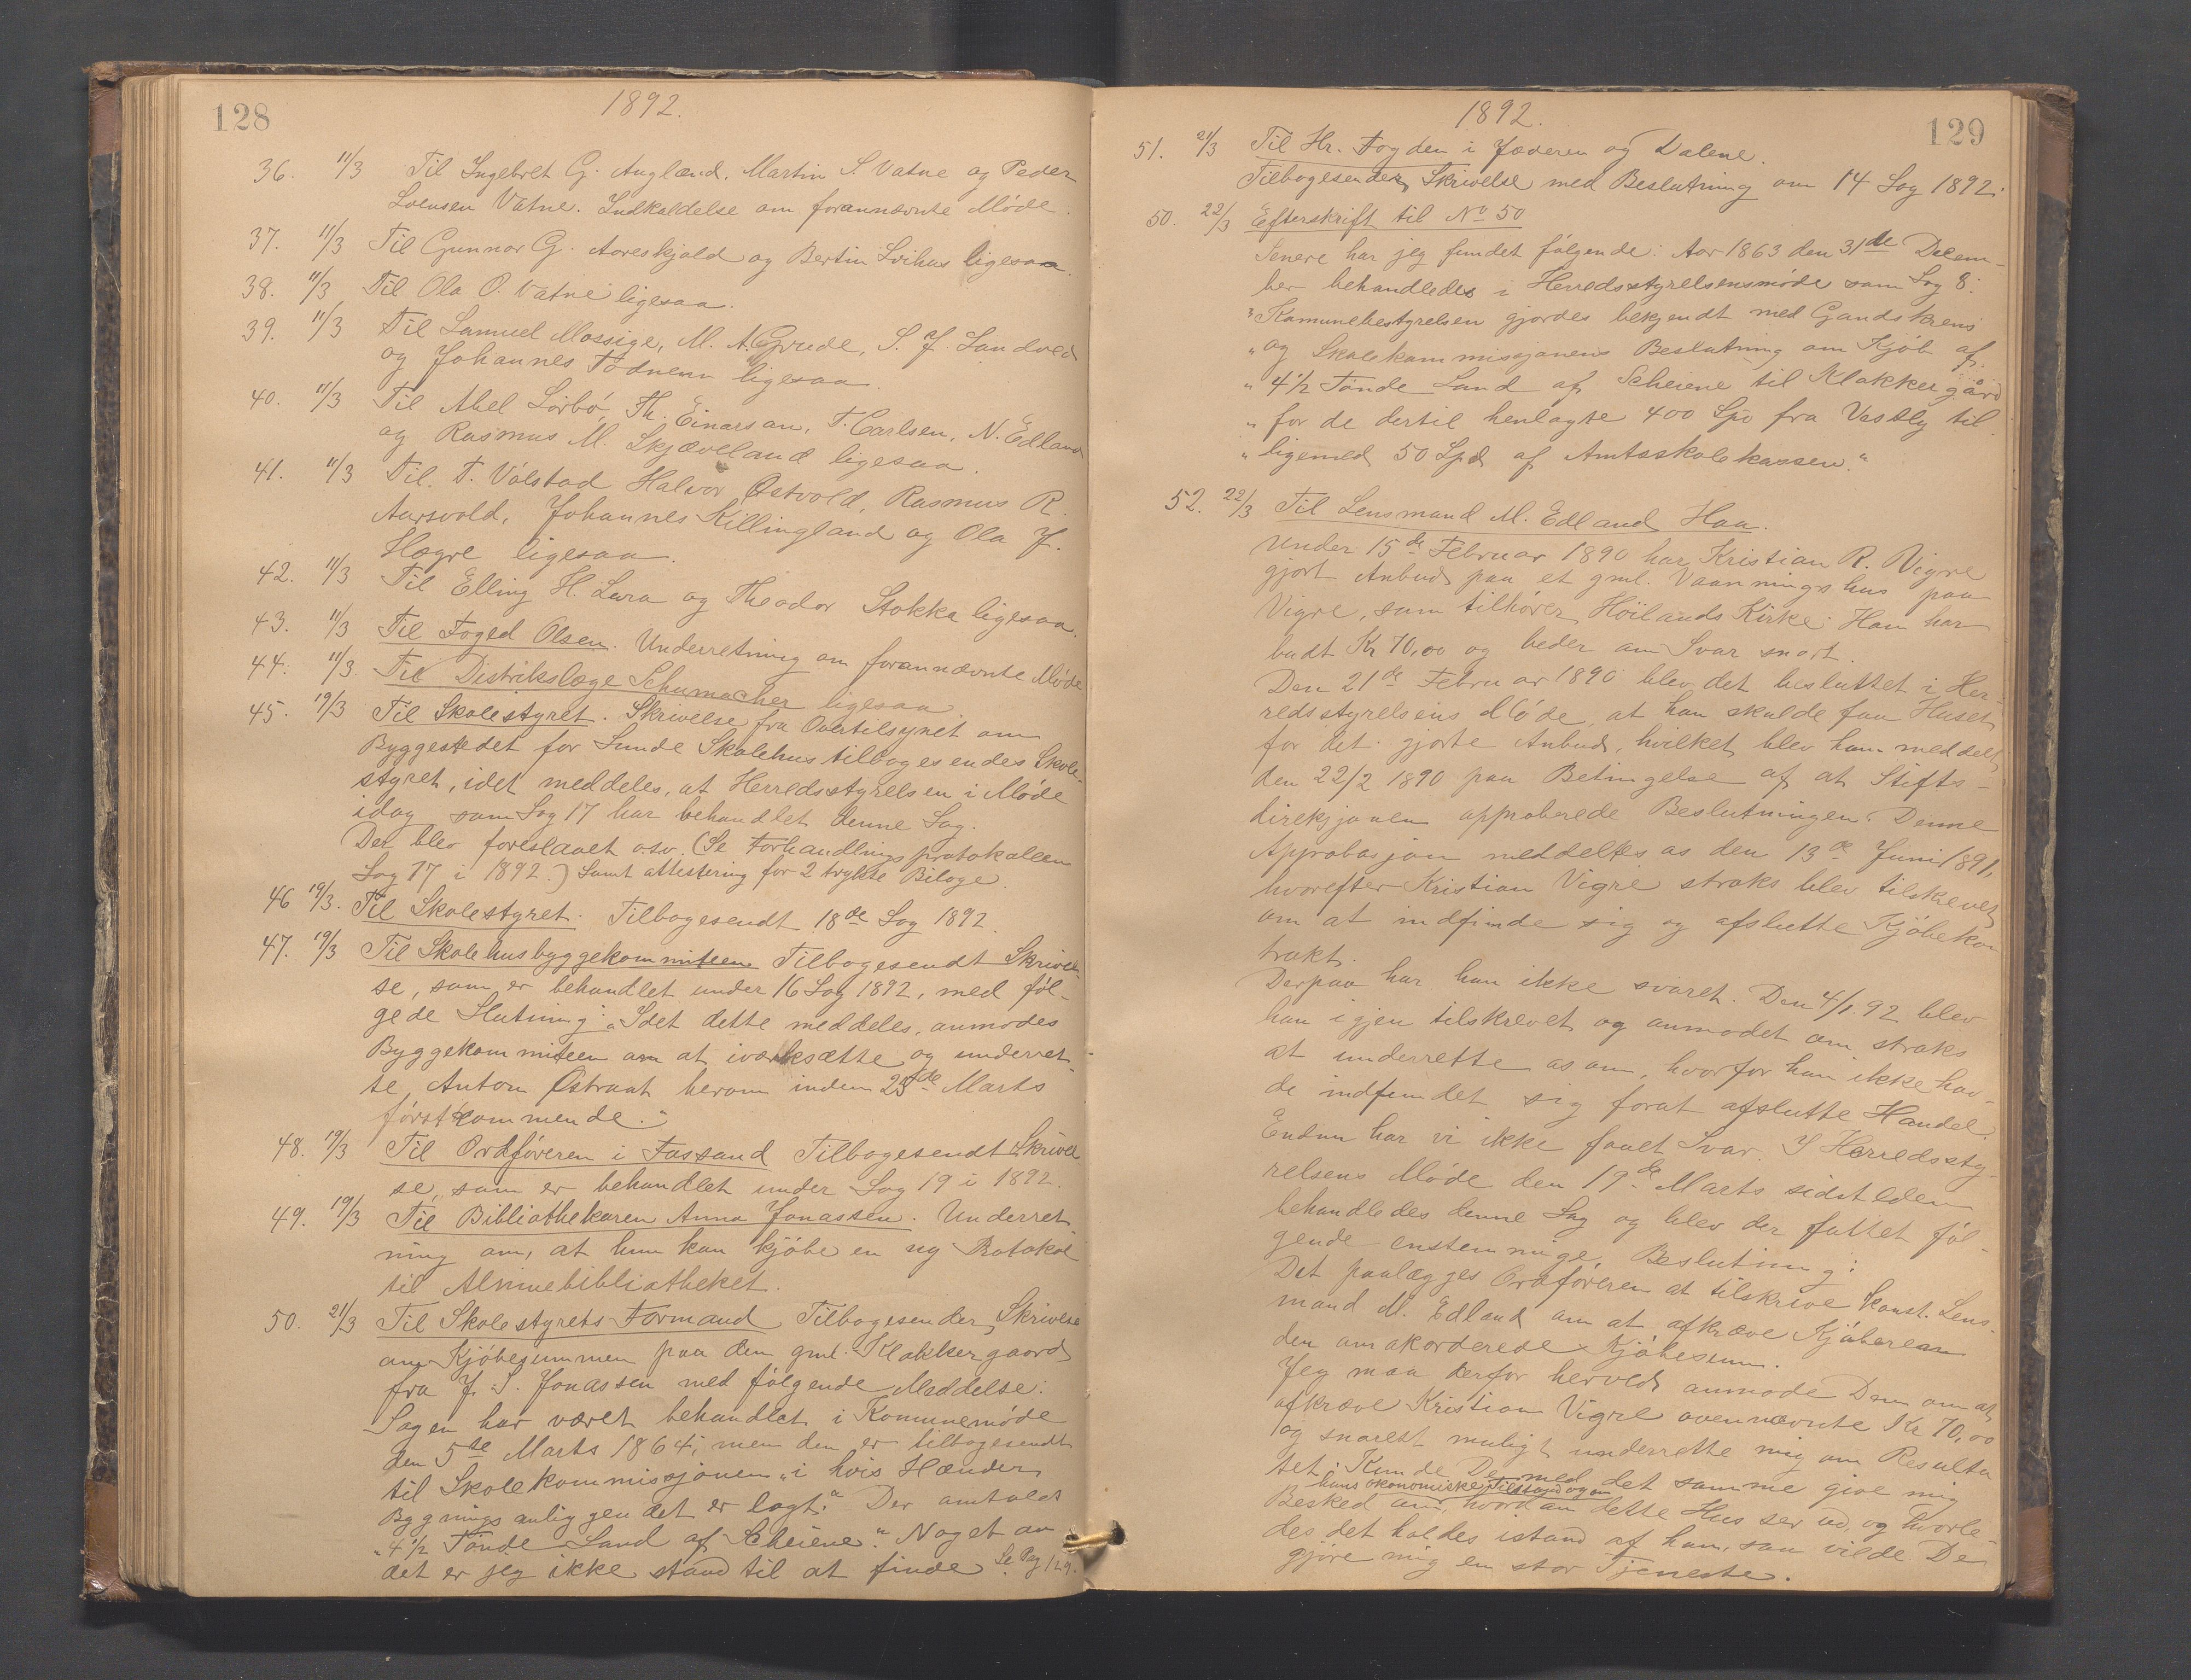 128
1892.
36. 11/3 Til Ingebret G. Augland, Martin S. Vatne og Peder
Svensen Vatne. Indkaldelse om forannævnte Møde.
37. 11/3 Til Gunnar G. Aareskjold og Bertin Svihus ligesaa.
38. 11/3 Til Ola O. Vatne ligesaa.
39. 11/3 Til Samuel Mossige, M. A. Grude, S. J. Sandved
og Johannes Tødnem ligesaa.
40. 11/3 Til Abel Sørbø, Th. Einarsan, T. Carlsen, N. Edland
og Rasmus M. Skjæveland ligesaa.
41. 11/3 Til. T. Vølstad Halvor Østvold, Rasmus R.
Aarsvold, Johannes Killingland og Ola J.
Høgre ligesaa.
42. 11/3 Til Elling H. Lura og Theodor Stokka ligesaa.
43. 11/3 Til Foged Olsen. Underretning om forannævnte Møde
44. 11/3. Til Distrikslæge Schumacher ligesaa
45. 19/3 Til Skolestyret. Skrivelse fra Overtilsynet om
Byggestedet for Sunde Skolehus tilbagesendes Skole-
styret, idet meddeles, at Herredsstyrelsen i Møde
idag som Sag 17 har behandlet denne Sag.
Der blev foreslaaet osv. (Se Forhandlingsprotokallen
Sag 17 i 1892.) Samt attestering for 2 trykte Bilage.
46 19/3. Til Skolestyret. Tilbagesendt 18de Sag 1892.
47. 19/3 Til Skolehusbyggekommiteen Tilbagesendt Skrivel-
se, som er behandlet under 16 Sag 1892, med føl-
gede Slutning: „Idet dette meddeles, anmodes
Byggekommiteen om at iværksætte og underret-
te Anton Østraat herom inden 25de Marts
førstkommende.“
48. 19/3 Til Ordføreren i Fossand Tilbagesendt Skrivel
se, som er behandlet under Sag 19 i 1892.
49. 19/3 Til Bibliothekaren Anna Jonassen. Underret
ning om, at hun kan kjøbe en ny Protokol
til Almuebibliotheket.
50. 21/3 Til Skolestyrets Formand Tilbagesender Skrivelse
om Kjøbesummen paa den gml. Klokkergaard
fra J. S. Jonassen med følgende Meddelse:
Sagen har været behandlet i Komunemøde
den 5te Marts 1864, men den er tilbagesendt
til Skolekommissjonen „i hvis Hænder
Bygningsanliggendet er lagt.“ Der omtales
„4½ Tønde Land af Scheiene“. Noget om
det er jeg ikke stand til at finde. Se Pag 129.
129
1892.
51. 21/3 Til Hr. Fogden i Jæderen og Dalene.
Tilbagesender Skrivelse med Beslutning om 14 Sag 1892.
50. 22/3 Efterskrift til No 50
Senere har jeg fundet følgende: Aar 1863 den 31de Decem-
ber behandledes i Herredsstyrelsensmøde som Sag 8:
„Komunebestyrelsen gjordes bekjendt med Gandskrens
„og Skolekommissjonens Beslutning om Kjøb af
„4½ Tønde Land af Scheiene til Klokkergård
„for de dertil henlagte 400 Spd fra Vestly til
„ligemed 50 Spd af Amtsskolekassen.“
52. 22/3 Til Lensmand M. Edland Haa.
Under 15de Februar 1890 har Kristian R. Vigre
gjort Anbud paa et gml. Vaanningshus paa
Vigre, som tilhører Høilands Kirke. Han har
budt Kr 70,00 og beder om Svar snart.
Den 21de Februar 1890 blev det besluttet i Her-
redsstyrelsens Møde, at han skulde faa Huset
for det gjorte Anbud, hvilket blev ham meddelt
den 22/2 1890 paa Betingelse af at Stifts-
direksjonen approberede Beslutningen. Denne
Approbasjon meddeltes os den 13de Juni 1891,
hvorefter Kristian Vigre straks blev tilskrevet
om at indfinde sig og afslutte Kjøbekon
trakt.
Derpaa har han ikke svaret. Den 4/1. 92 blev
han igjen tilskrevet og anmodet om straks
at underrette os om, hvorfor han ikke hav-
de indfundet sig forat afslutte Handel.
Endnu har vi ikke faaet Svar. I Herredssty-
relsens Møde den 19de Marts sidstleden
behandledes denne Sag og blev der fattet føl-
gende enstemmige Beslutning:
Det paalægges Ordføreren at tilskrive konst. Lens-
mand M. Edland om at afkræve Kjøberen
den omakorderede Kjøbesum.
Jeg maa derfor herved anmode Dem om at
afkræve Kristian Vigre ovennævnte Kr 70,00
og snarest muligt underrette mig om Resulta
tet. Kunde De med det samme give mig
hans økonomiske Tilstand og om
Besked om, hvordan dette Hus ser ud, og hvorle-
des det holdes istand af ham, saa vilde De
gjøre mig en stor Tjeneste.